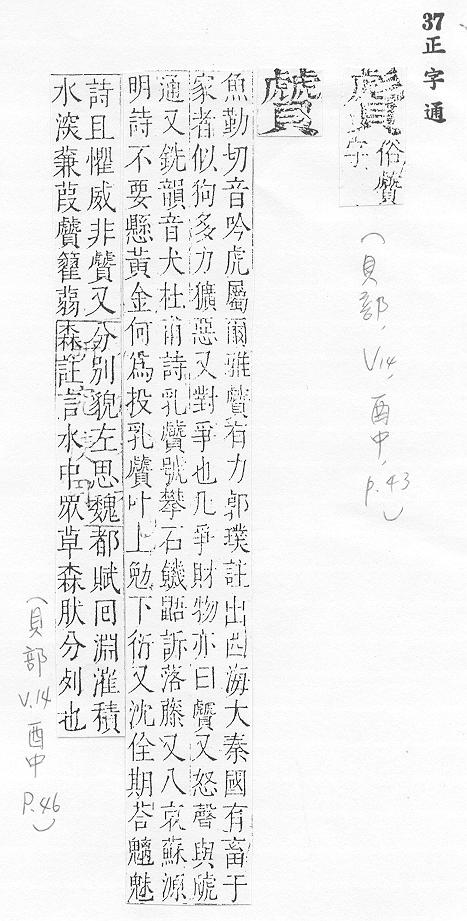 37正字通
俗贙字
(貝部, V.14, 酉中, p.43)
贙
魚勤切音吟虎屬爾雅贙有力郭璞註出西海大秦國有畜于
家者似狗多力獷惡又對爭也凡爭財物亦曰贙又怒聲與虓
通又銑韻音犬杜甫詩乳贙號攀石饑鼯訴落藤又八哀蘇源
明詩不要懸黃金何爲投乳贙叶上勉下衍又沈佺期荅魑魅
詩且懼威非贙又分別貌左思魏都賦囘淵漼積
水深蒹葭贙雚蒻森註言水中眾草森肰分列也
(貝部 V.14 酉中 P.46)